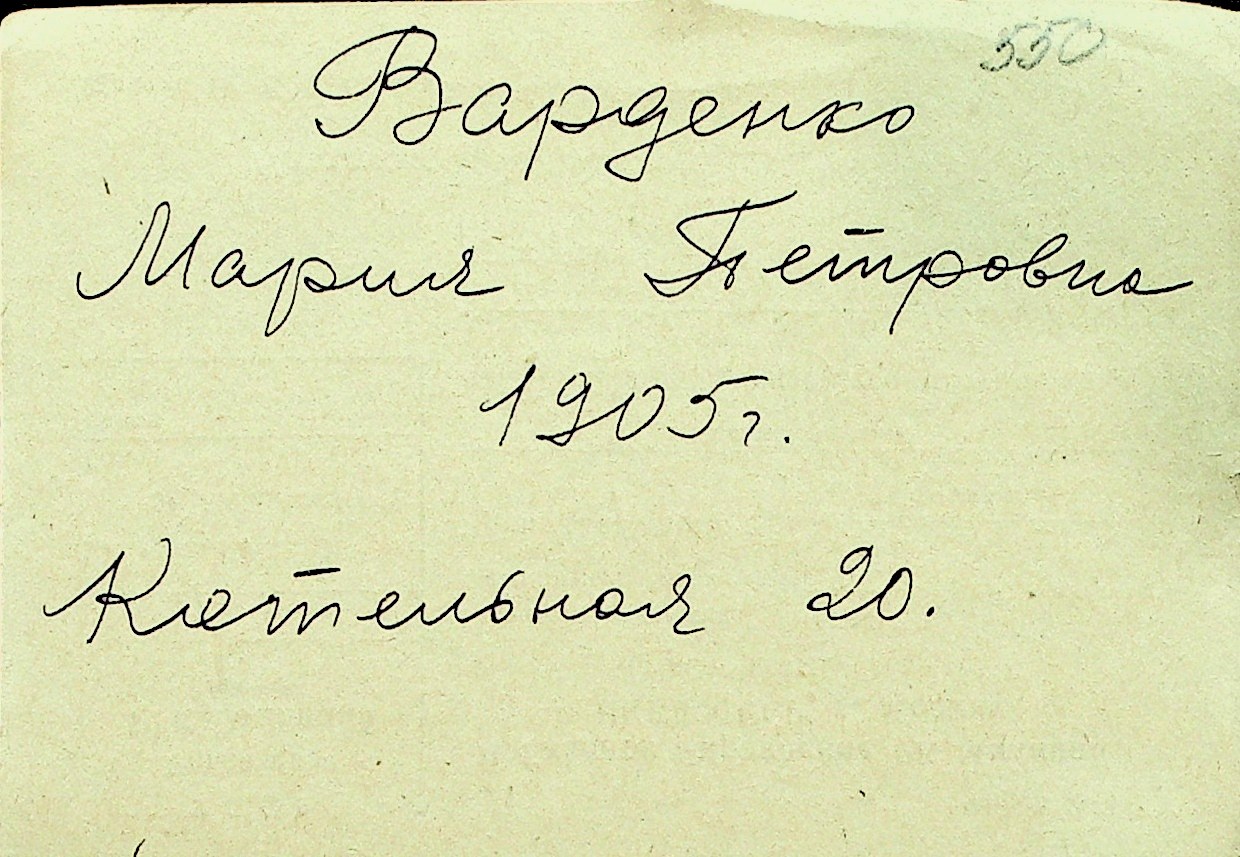 550
Варденко
Мария Петровна
1905г.
Котельная 20.